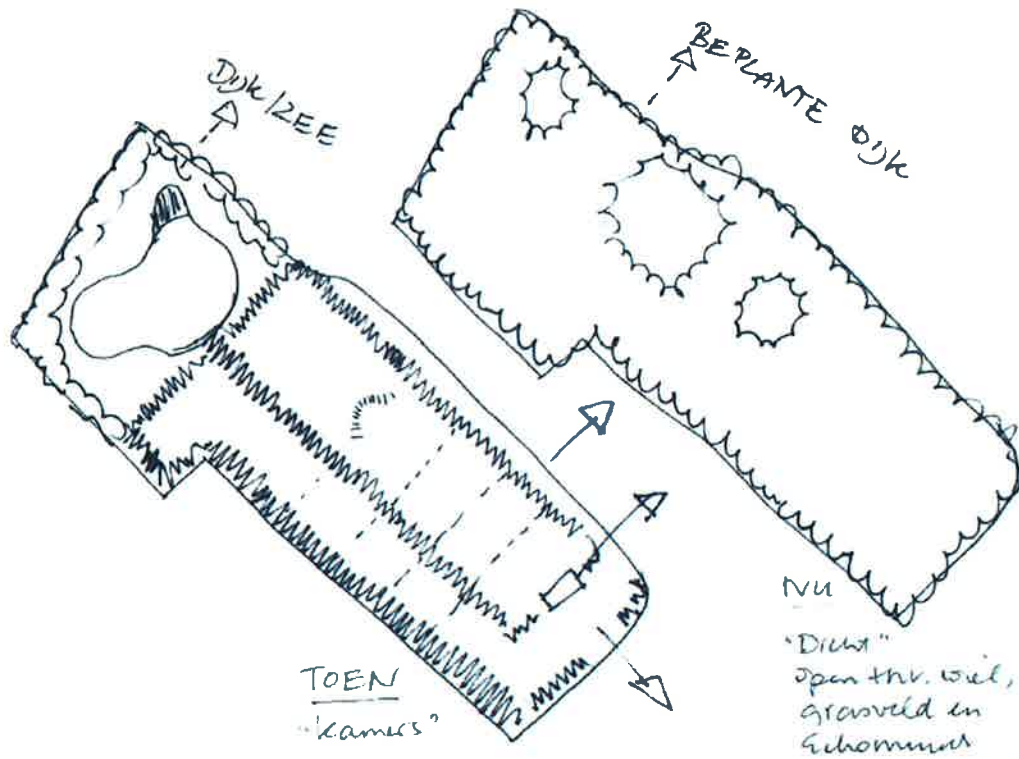 Dijk/ZEE
BEPLANTE DIJK
TOEN
"Kamers"
NU
"Dicht"
open t.h.v. wiel,
grasveld en